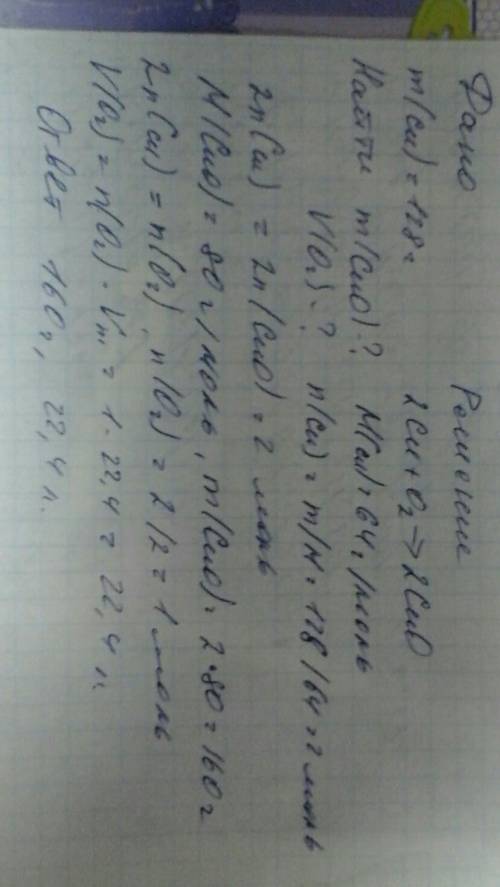 Дано Решение
m(Cu) = 128г 2Cu + O₂ → 2CuO
Найти m(CuO)-? M(Cu) = 64г/моль
V(O₂)-? n(Cu) = m/M = 128/64 = 2 моль
2n(Cu) = 2n(CuO) = 2 моль
M(CuO) = 80г/моль, m(CuO) = 2·80 = 160г
2n(Cu) = n(O₂), n(O₂) = 2/2 = 1 моль
V(O₂) = n(O₂)·Vm = 1·22,4 = 22,4 л.
Ответ 160г, 22,4 л.